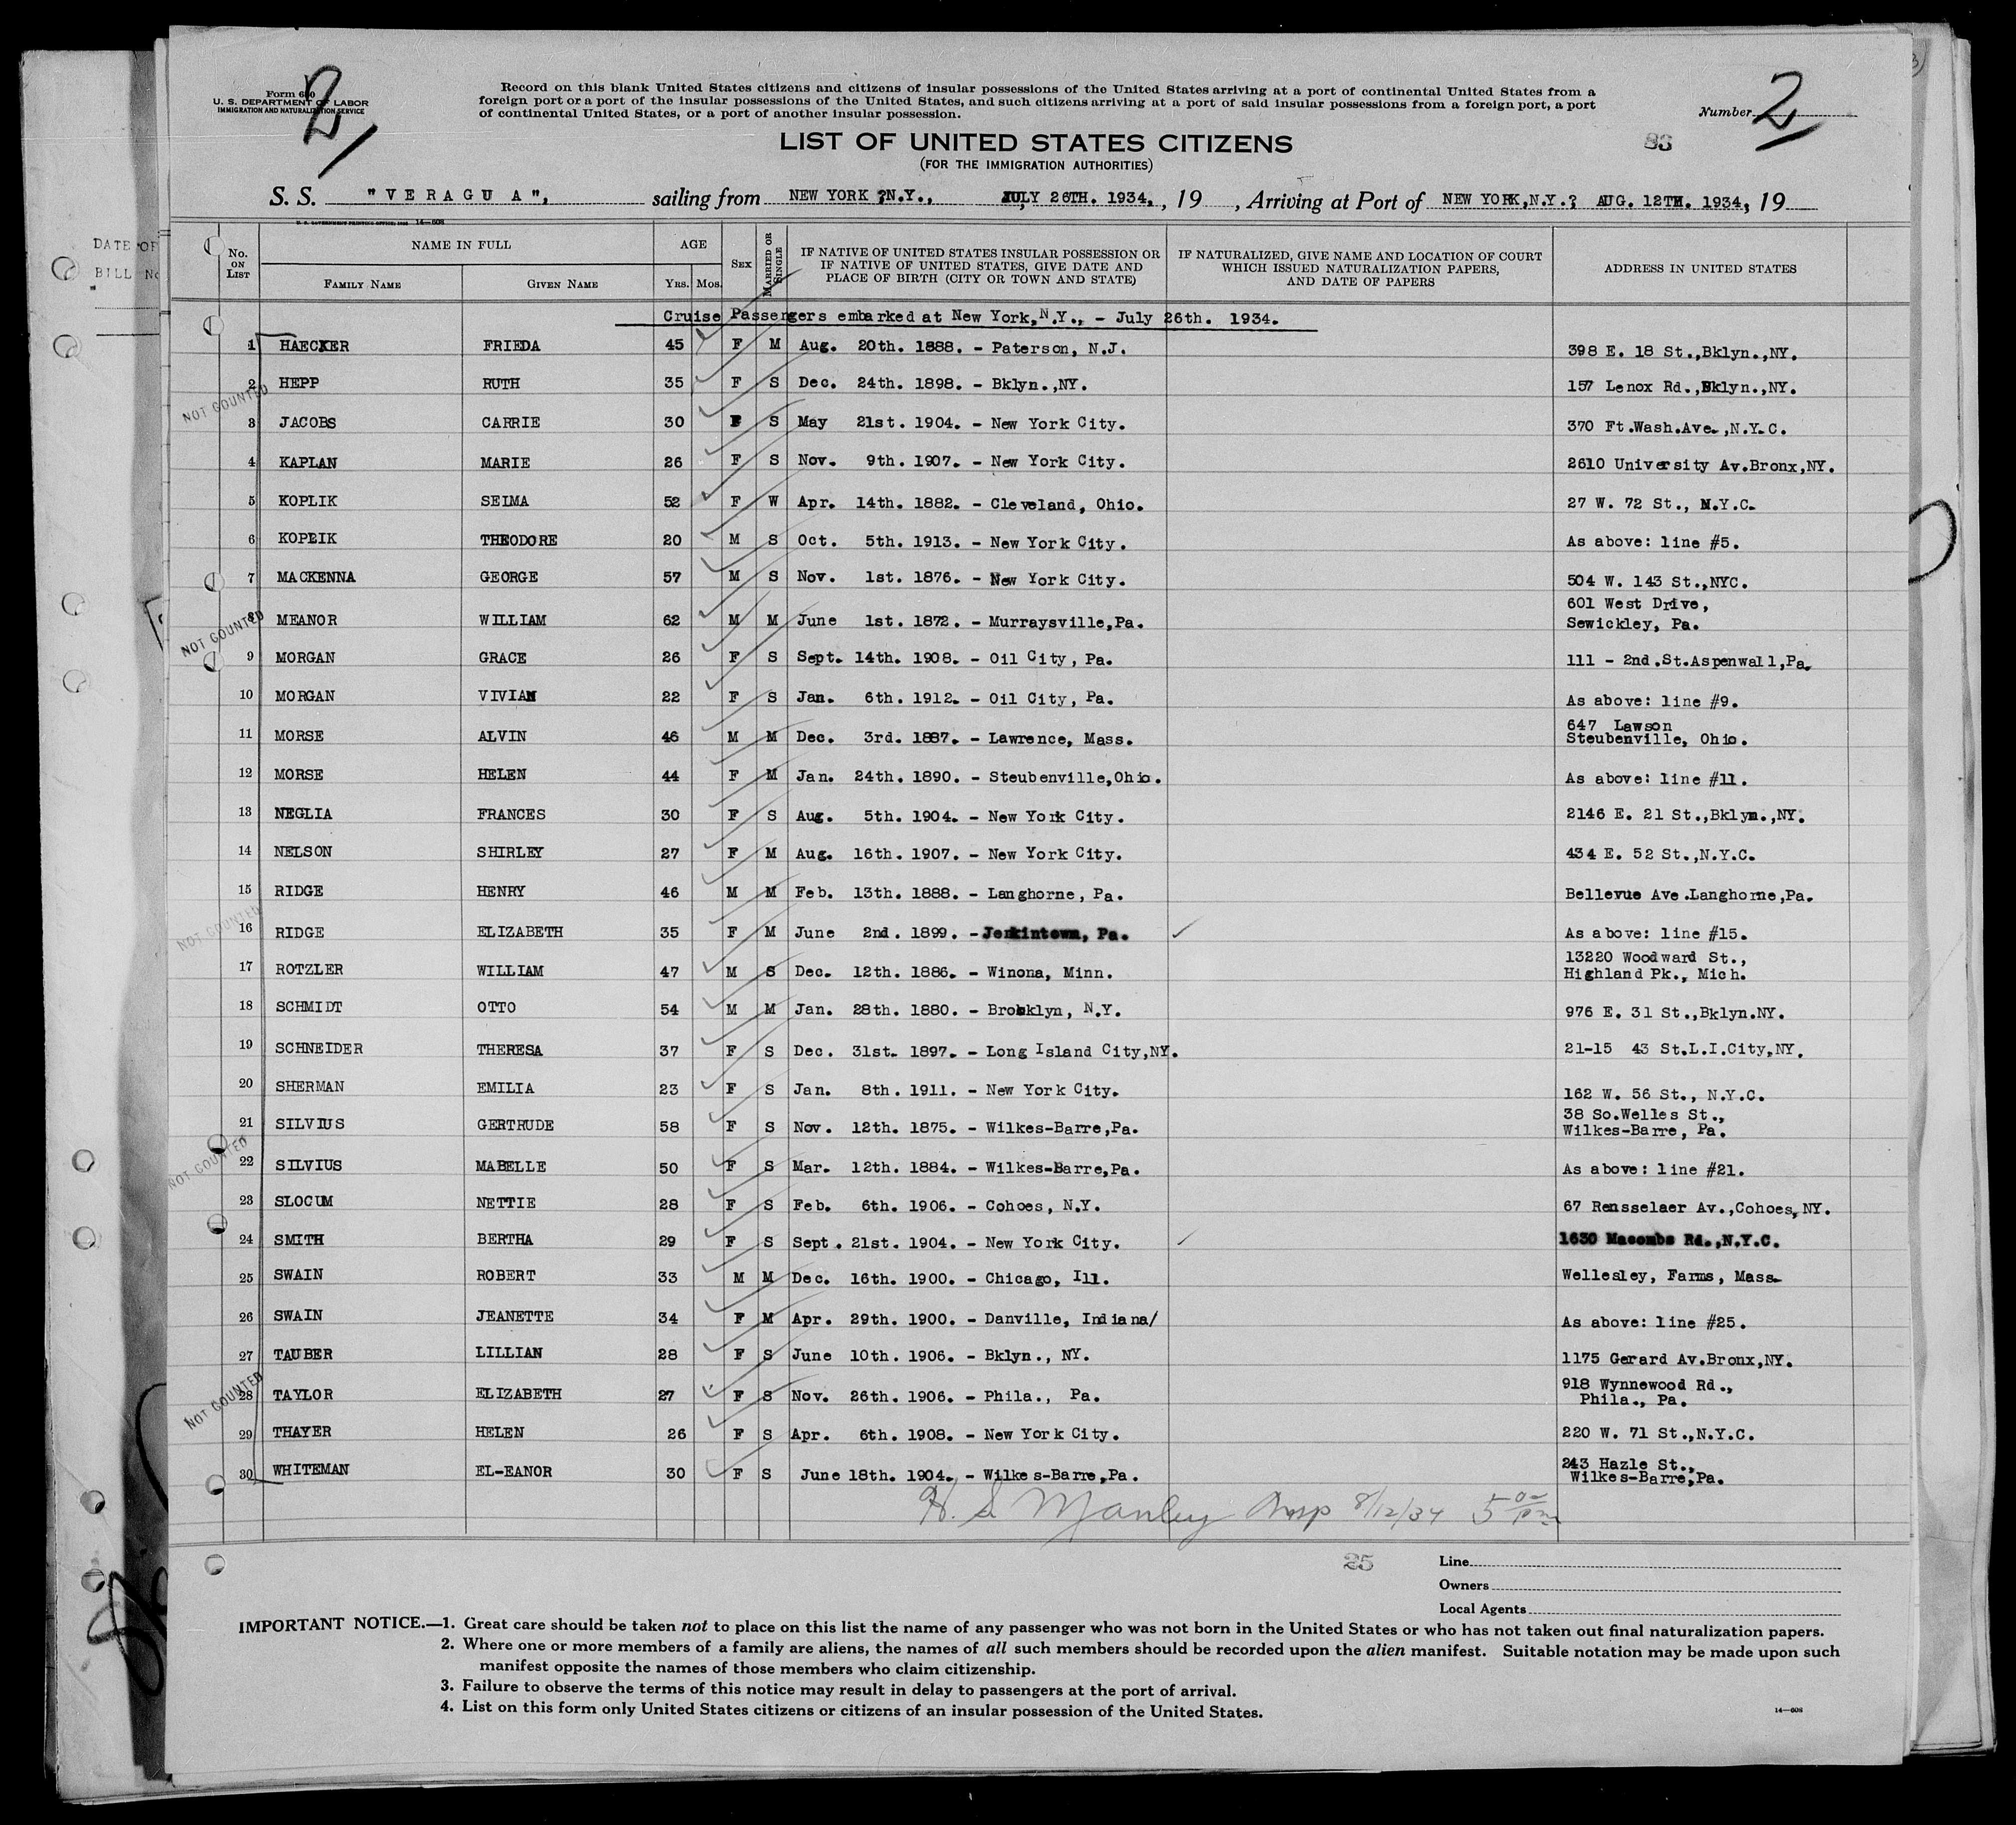 Form 630
U. S. DEPARTMENT OF LABOR
IMMIGRATION AND NATURALIZATION SERVICE
2
Record on this blank United States citizens and citizens of insular possessions of the United States arriving at a port of continental United States from a
foreign port or a port of the insular possessions of the United States, and such citizens arriving at a port of said insular possessions from a foreign port, a port
of continental United States, or a port of another insular possession.
Number 2
LIST OF UNITED STATES CITIZENS
(FOR THE IMMIGRATION AUTHORITIES)
83
S. S. "VERAGU A", sailing from NEW YORK ?N.Y., JULY 26TH. 1934., 19 , Arriving at Port of NEW YORK,N.Y.? AUG. 12TH. 1934, 19
14—608
DATE OF
BILL No
No. ON LIST NAME IN FULL FAMILY NAME GIVEN NAME AGE YRS. MOS. SEX MARRIED OR SINGLE IF NATIVE OF UNITED STATES INSULAR POSSESSION OR IF NATIVE OF UNITED STATES, GIVE DATE AND PLACE OF BIRTH (CITY OR TOWN AND STATE) IF NATURALIZED, GIVE NAME AND LOCATION OF COURT WHICH ISSUED NATURALIZATION PAPERS, AND DATE OF PAPERS ADDRESS IN UNITED STATES
Cruise Passengers embarked at New York,N.Y., - July 26th. 1934.
1 HAECKER FRIEDA 45 F M Aug. 20th. 1888. - Paterson, N.J. 398 E. 18 St.,Bklyn.,NY.
2 HEPP RUTH 35 F S Dec. 24th. 1898. - Bklyn.,NY. 157 Lenox Rd.,Bklyn.,NY.
NOT COUNTED
3 JACOBS CARRIE 30 F S May 21st. 1904. - New York City. 370 Ft.Wash.Ave.,N.Y.C.
4 KAPLAN MARIE 26 F S Nov. 9th. 1907. - New York City. 2610 University Av.Bronx,NY.
5 KOPLIK SELMA 52 F W Apr. 14th. 1882. - Cleveland, Ohio. 27 W. 72 St., N.Y.C.
6 KOPLIK THEODORE 20 M S Oct. 5th. 1913. - New York City. As above: line #5.
7 MACKENNA GEORGE 57 M S Nov. 1st. 1876. - New York City. 504 W. 143 St.,NYC.
8 MEANOR WILLIAM 62 M M June 1st. 1872. - Murraysville,Pa. 601 West Drive,
Sewickley, Pa.
NOT COUNTED
9 MORGAN GRACE 26 F S Sept. 14th. 1908. - Oil City, Pa. 111 - 2nd.St.Aspenwall,Pa.
10 MORGAN VIVIAN 22 F S Jan. 6th. 1912. - Oil City, Pa. As above: line #9.
11 MORSE ALVIN 46 M M Dec. 3rd. 1887. - Lawrence, Mass. 647 Lawson
Steubenville, Ohio.
12 MORSE HELEN 44 F M Jan. 24th. 1890. - Steubenville,Ohio. As above: line #11.
13 NEGLIA FRANCES 30 F S Aug. 5th. 1904. - New York City. 2146 E. 21 St.,Bklyn.,NY.
14 NELSON SHIRLEY 27 F M Aug. 16th. 1907. - New York City. 434 E. 52 St.,N.Y.C.
15 RIDGE HENRY 46 M M Feb. 13th. 1888. - Langhorne, Pa. Bellevue Ave.Langhorne,Pa.
NOT COUNTED
16 RIDGE ELIZABETH 35 F M June 2nd. 1899. - Jenkintown, Pa. As above: line #15.
17 ROTZLER WILLIAM 47 M S Dec. 12th. 1886. - Winona, Minn. 13220 Woodward St.,
Highland Pk., Mich.
18 SCHMIDT OTTO 54 M M Jan. 28th. 1880. - Brooklyn, N.Y. 976 E. 31 St.,Bklyn.NY.
19 SCHNEIDER THERESA 37 F S Dec. 31st. 1897. - Long Island City,NY. 21-15 43 St.L.I.City,NY.
20 SHERMAN EMILIA 23 F S Jan. 8th. 1911. - New York City. 162 W. 56 St., N.Y.C.
21 SILVIUS GERTRUDE 58 F S Nov. 12th. 1875. - Wilkes-Barre,Pa. 38 So.Welles St.,
Wilkes-Barre, Pa.
NOT COUNTED
22 SILVIUS MABELLE 50 F S Mar. 12th. 1884. - Wilkes-Barre,Pa. As above: line #21.
23 SLOCUM NETTIE 28 F S Feb. 6th. 1906. - Cohoes, N.Y. 67 Rensselaer Av.,Cohoes,NY.
24 SMITH BERTHA 29 F S Sept. 21st. 1904. - New York City. 1630 Macombs Rd.,N.Y.C.
25 SWAIN ROBERT 33 M M Dec. 16th. 1900. - Chicago, Ill. Wellesley, Farms, Mass.
26 SWAIN JEANETTE 34 F M Apr. 29th. 1900. - Danville, Indiana/ As above: line #25.
27 TAUBER LILLIAN 28 F S June 10th. 1906. - Bklyn., NY. 1175 Gerard Av.Bronx,NY.
28 TAYLOR ELIZABETH 27 F S Nov. 26th. 1906. - Phila., Pa. 918 Wynnewood Rd.,
Phila., Pa.
NOT COUNTED
29 THAYER HELEN 26 F S Apr. 6th. 1908. - New York City. 220 W. 71 St.,N.Y.C.
30 WHITEMAN EL-EANOR 30 F S June 18th. 1904. - Wilkes-Barre,Pa. 243 Hazle St.,
Wilkes-Barre,Pa.
H. S. Manley Insp 8/12/34 5 00 pm
25
Line
Owners
Local Agents
IMPORTANT NOTICE.—1. Great care should be taken not to place on this list the name of any passenger who was not born in the United States or who has not taken out final naturalization papers.
2. Where one or more members of a family are aliens, the names of all such members should be recorded upon the alien manifest. Suitable notation may be made upon such
manifest opposite the names of those members who claim citizenship.
3. Failure to observe the terms of this notice may result in delay to passengers at the port of arrival.
4. List on this form only United States citizens or citizens of an insular possession of the United States.
14—608